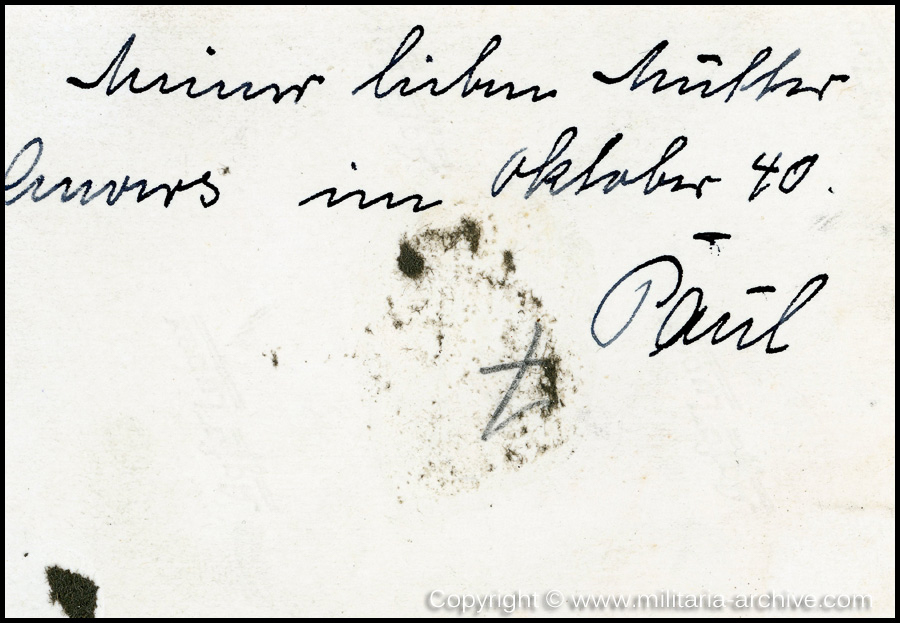 Meiner lieben Mutter
im Oktober 40.
Paul
Copyright © www.militaria-archive.com